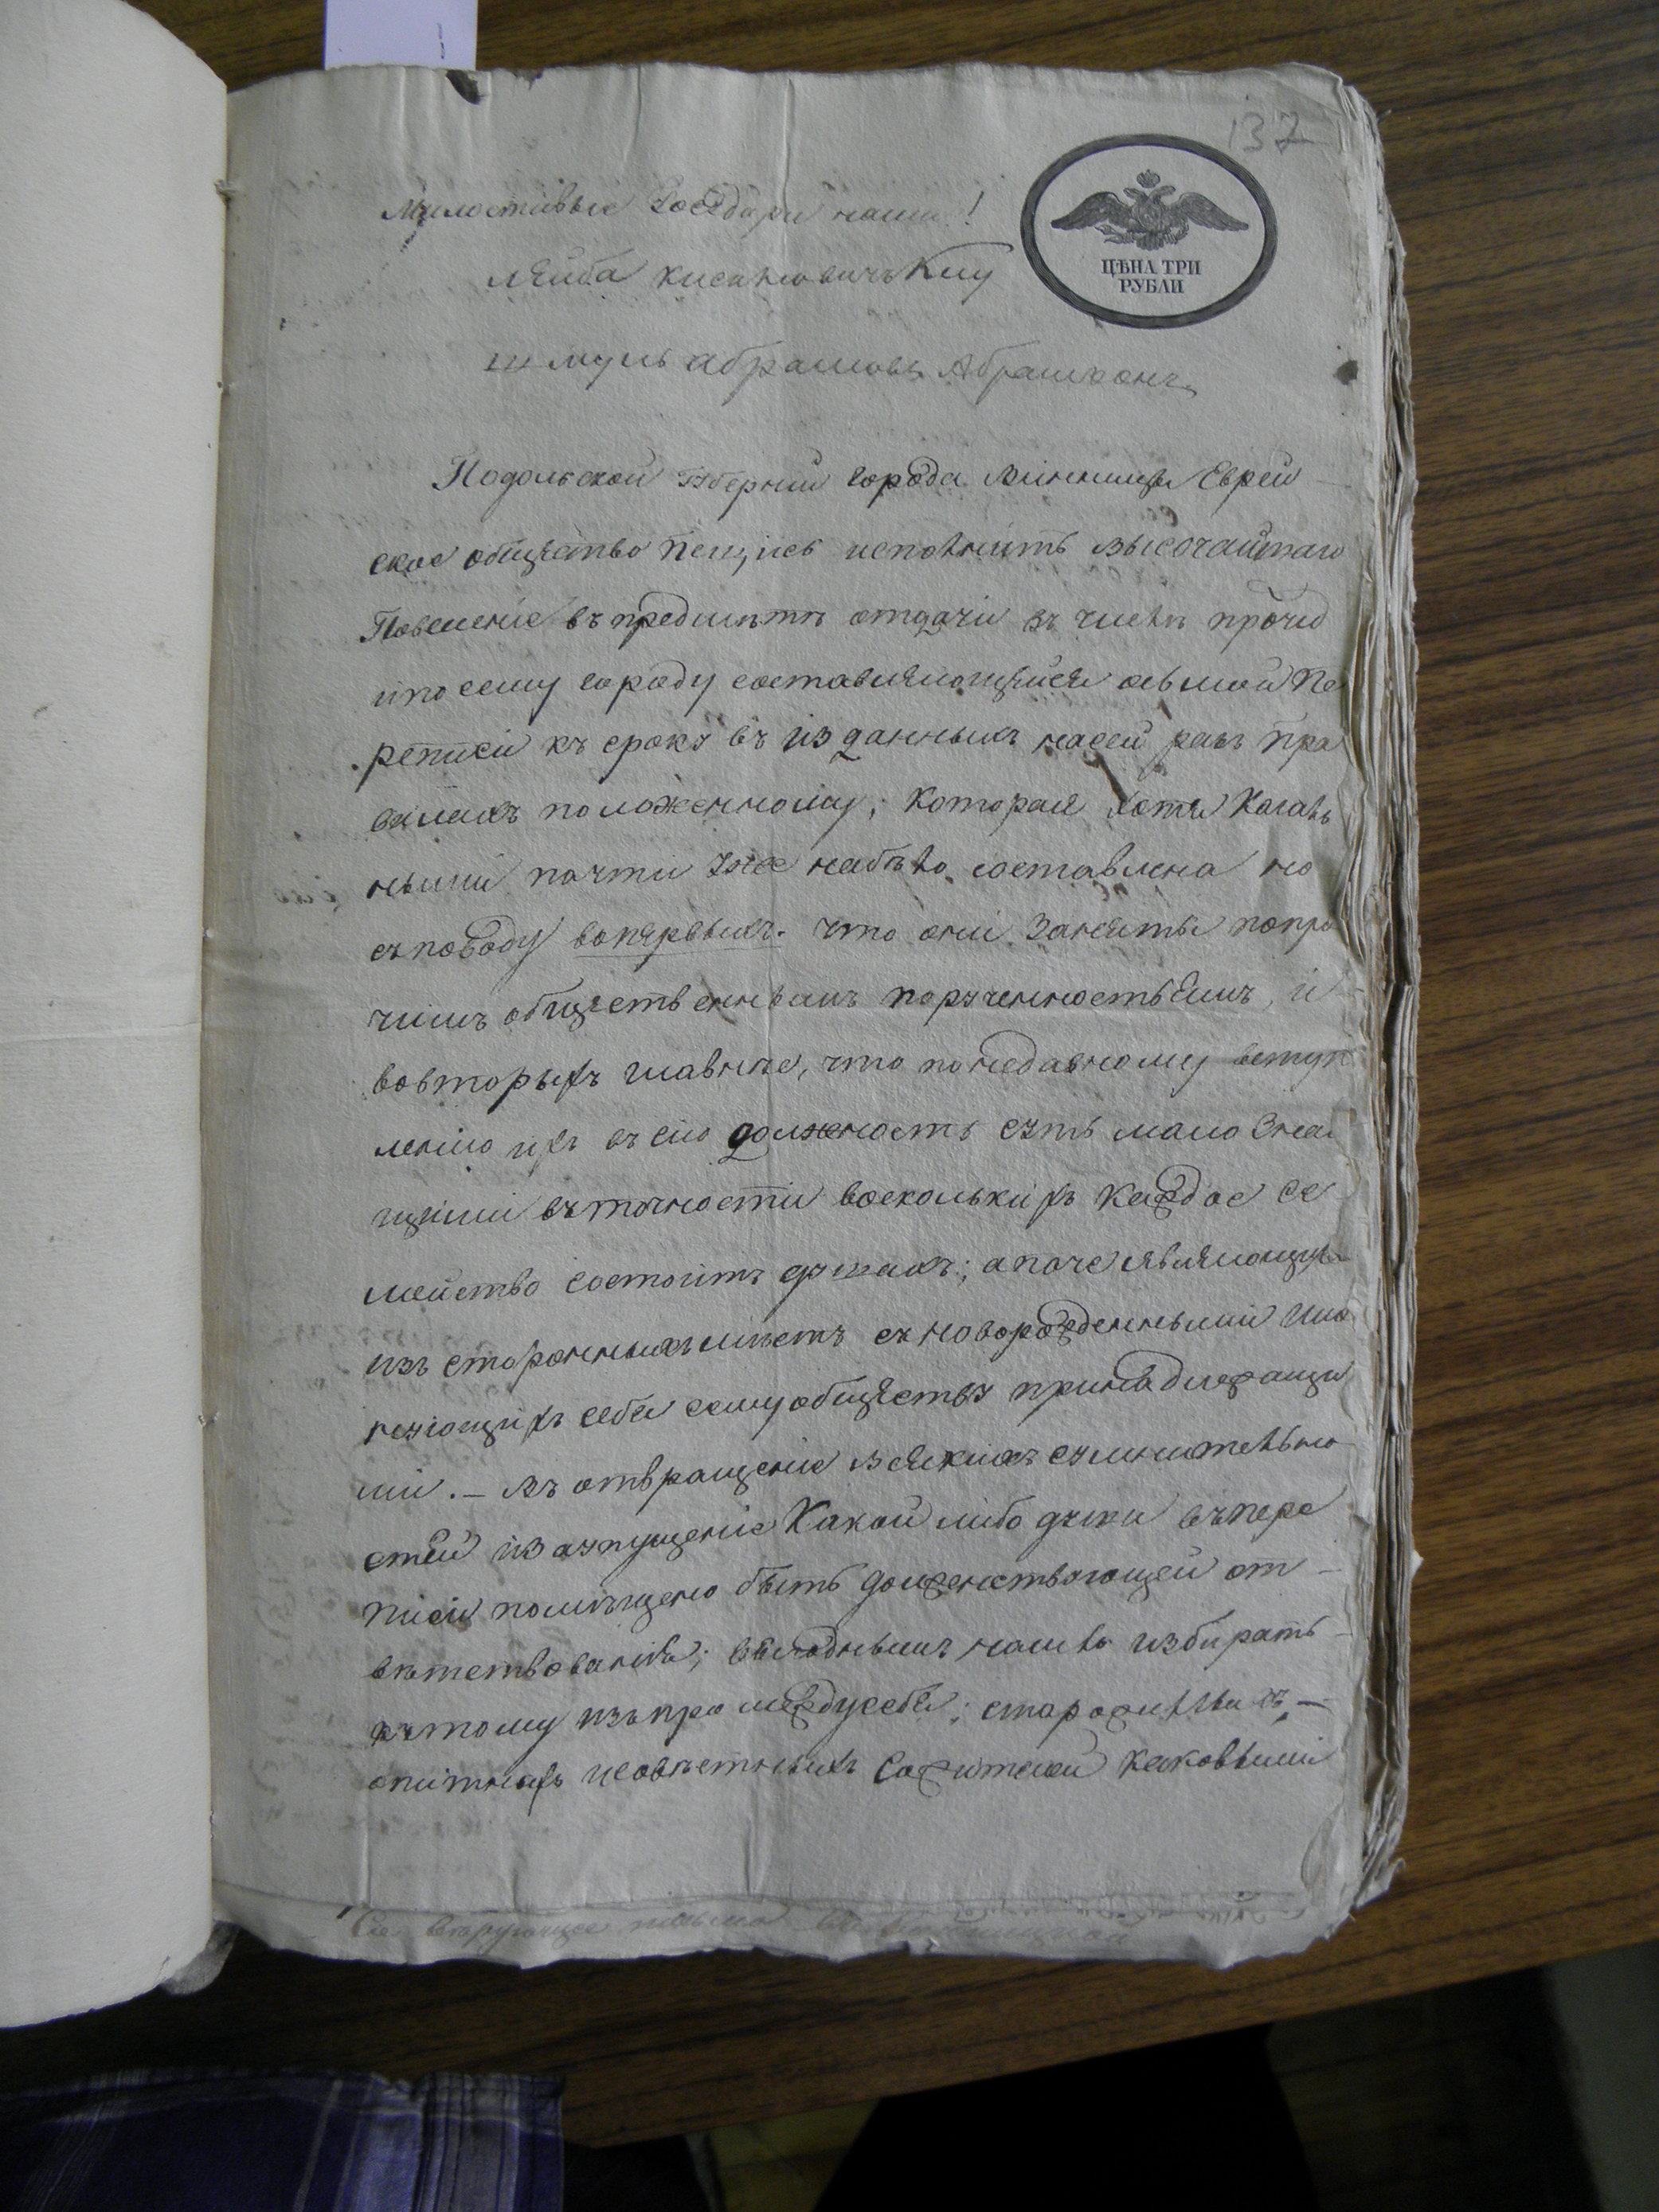 137
Милостивые Государи наши!
ЦѢНА ТРИ
РУБЛИ
Лейба
Шмуль Абрамовъ Абрамсонъ
Подольской Губерніи города Винницы Еврей-
ское общество пещись исполнить высочайшаго
Повеленіе въ предмѣтѣ отдачи въ числѣ прочид
и по сему городу составляющейся осьмой Пе
реписи къ сроку въ изданныхъ на сей разъ пра
вилахъ положенному; которая хотя Кагаль
ными почти уже набѣло составлена но
съ поводу вопервыхъ. что они заняты попро
чимъ общественнымъ порученностьямъ, и
вовторыхъ главнѣе, что по недавному вступ
лению ихъ въ сию должность суть мало Знаю
щими въ точности восколькихъ каждое Се
мейство состоитъ душахъ; а паче являющих
изъ сторонныхъ мѣстъ съ новорожденными име
нующихъ себя сему обществу принадлежащи
ми. – Въ отвращение всякихъ сумнительно
стей из азпущение Какой либо души въ пере
писи помѣщено быть долженствующей от-
вѣтствования; выгоднымъ нашлъ избирать
къ тому изъ про между себя; старожилыхъ –
опитныхъ и совѣстныхъ Сожителей каковыми
Сие Вѣрующее письмо